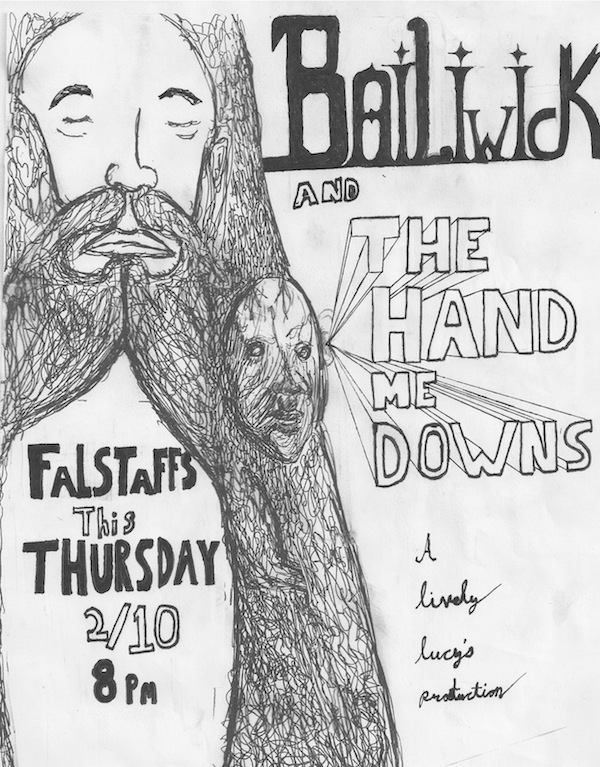 Bailiwick
AND
THE
HAND
ME
DOWNS
FALSTAFFS
This
THURSDAY
2/10
8 PM
A
lively
lucy's
production